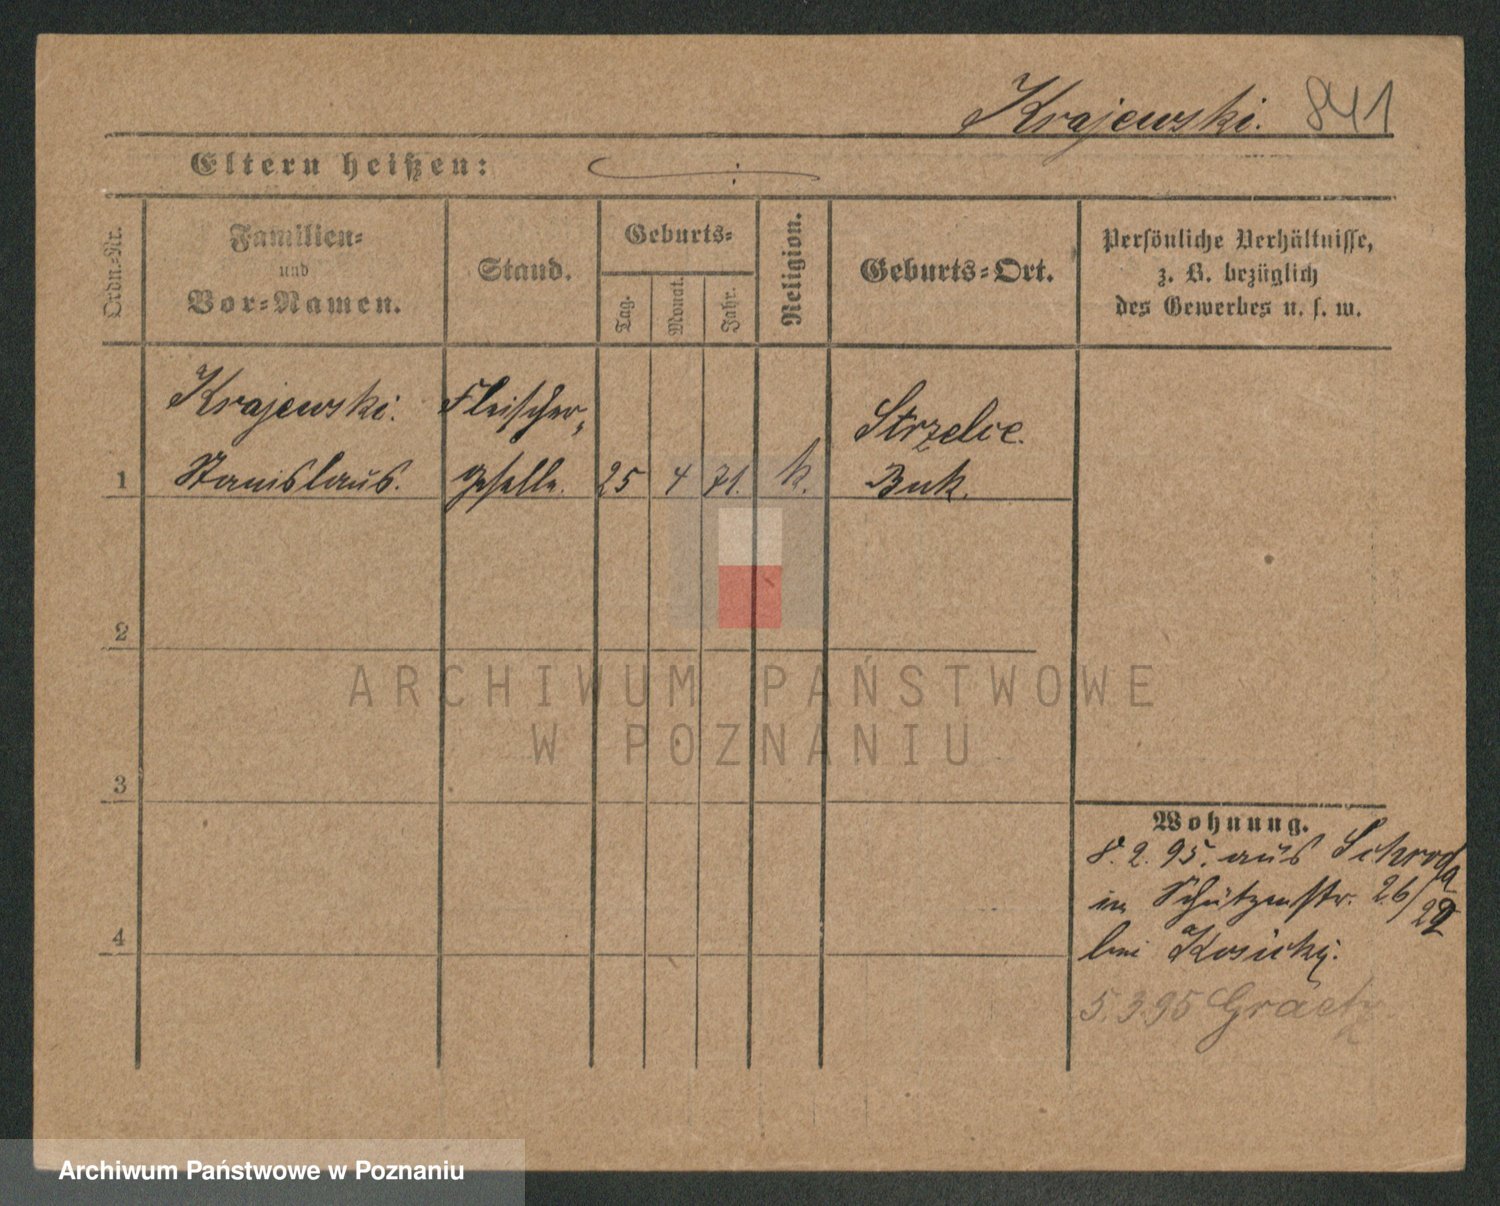 Krajewski. 841
Eltern heißen:
Ordn.-Nr.
Familien-
und
Vor-Namen.
Stand.
Geburts-
Tag.
Monat.
Jahr.
Religion.
Geburts-Ort.
Persönliche Verhältnisse,
z. B. bezüglich
des Gewerbes u. s. w.
Krajewski. Fleischer-
Strzelce.
1 Stanislaus. geselle. 25 4 71. k. Buk.
2
ARCHIWUM PAŃSTWOWE
W POZNANIU
3
Wohnung.
8. 2. 95. aus Schroda
in Schützenstr. 26/
4
bei Kosicki.
5. 3 95 Graetz.
Archiwum Państwowe w Poznaniu